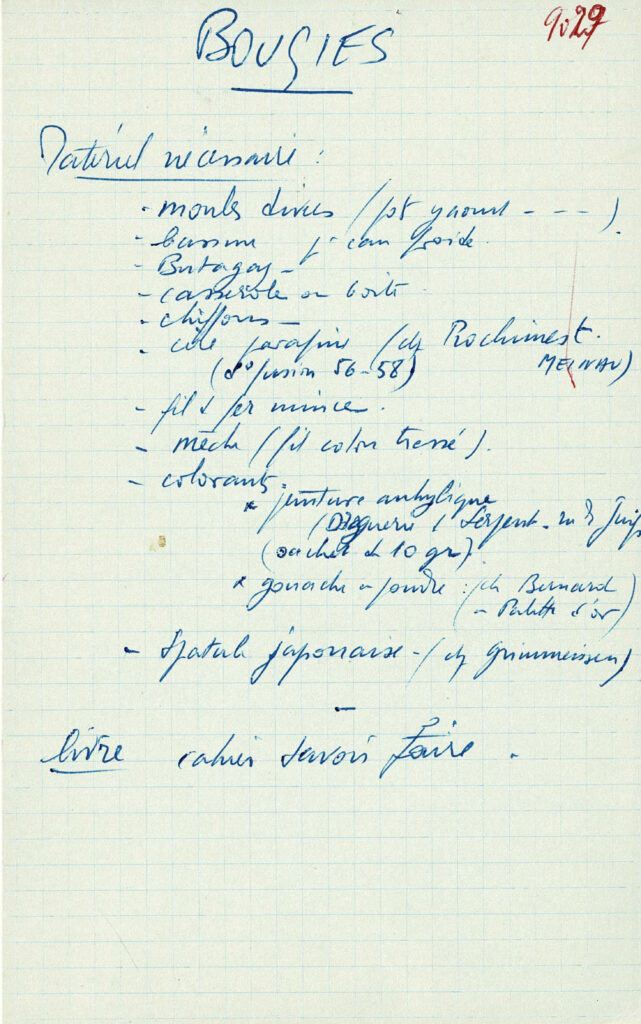 BOUGIES
9027
Matériel nécessaire :
- moules divers (pot yaourt - - - ).
- bassine pr eau froide.
- Butagaz -
- casserole ou boite.
- chiffons -
- cire parafine (chz Rochimest.
(d° fusion 56-58) MEINAU)
- fil d fer mince.
- mèche (fil coton tressé).
- colorants.
* teinture anhylique
(Droguerie l Serpent - ru d Juifs
(sachet d 10 gr).
* gouache en poudre : (ch Bernard
- Palette d'or)
- Spatule japonnaise - (chz Grimmeissen)
-
livre cahier savoir faire.